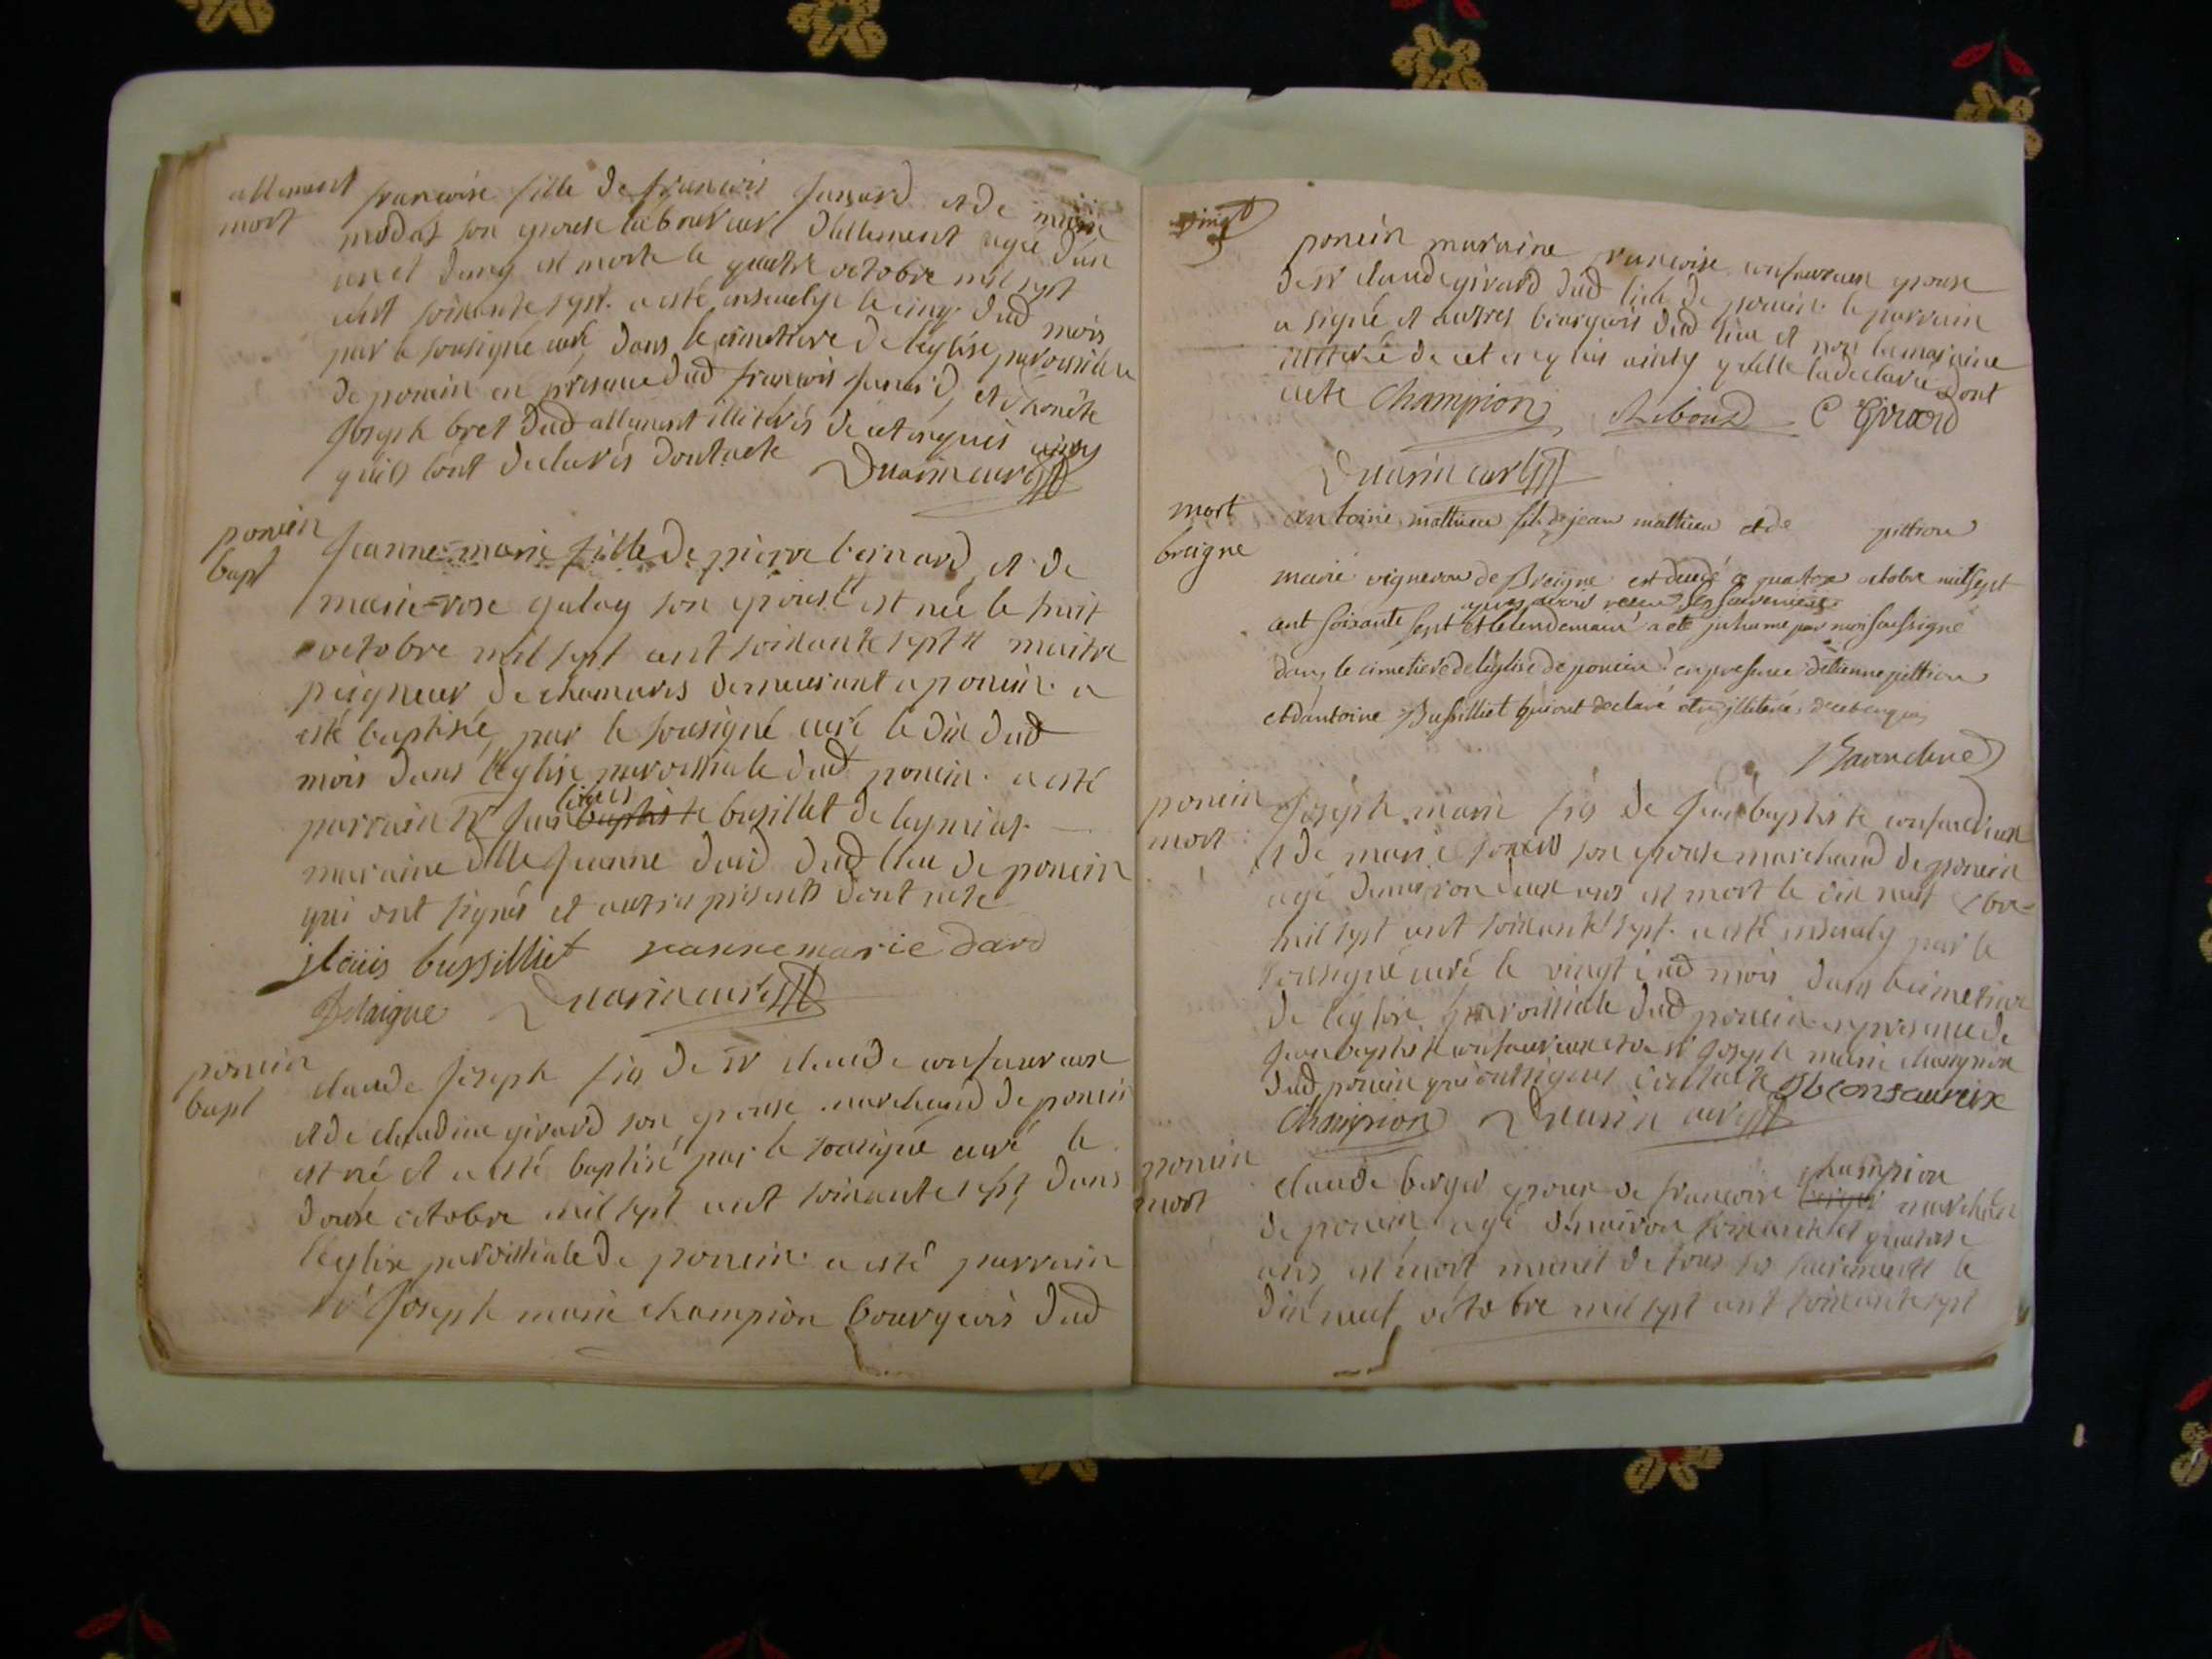 allement
mort
françoise fille de françois et de marie
son epouse laboureur d'allement agée d'un
an et demy est morte le quatre octobre mil sept
cent soixante sept. a esté ensevelye le cinq dud mois
par le sousigné curé dans le cimetiere de leglise paroissiale
de poncin en présence dud françois et d'honête
Joseph bret dud allement illiterés de ce enquis ainsy
quils lont declarés dont acte Duarin curé
poncin
bapt
Jeanne-marie fille de pierre bernard et de
marie-rose galay son epouse est née le huit
octobre mil sept cent soixante sept maitre
peigneur de chamvres demeurant a poncin. a
esté baptisée par le sousigné curé le dix dud
mois dans l'eglise paroissiale dud poncin. a esté
louis
parrain Sr Jean baptiste busillet de leymiat
maraine dlle Jeanne dud lieu de poncin
qui ont signés et autres présents dont acte
jlouis bussilliet jeanne marie dard
Delaigue Duarin curé
poncin
bapt
claude Joseph fils de Sr claude confavreux
et de claudine girard son epouse marchand de poncin
est né et a esté baptisé par le sousigné curé le
douse octobre mil sept cent soixante sept dans
l'eglise paroissiale de poncin. a esté parrain
Sr Joseph marie champion bourgeois dud
vingt
poncin maraine francoise confavreux epouse
de Sr claude girard dud lieu de poncin. le parrain
a signé et autres bourgeois dud lieu et non la maraine
illiterée de ce enquis ainsy quelle la declaré dont
acte Champion Riboud C Girard
Duarin curé
mort
breigne
antoine mathieu fils de jean mathieu et de pittion
marié vigneron de Breigne est decedé le quatorze octobre mil sept
apres avoir receu les sacremens
cent soixante sept et le lendemain a eté inhumé par moi soussigné
dans le cimetiere de leglise de poncin en presence detienne pittion
et dantoine Bussilliet qui ont declaré etre illiterés de ce enquis
poncin
mort
Joseph marie fils de Jean baptiste confavreux
et de marie son epouse marchand de poncin
agé d'environ deux ans est mort le dix neuf 8bre
mil sept cent soixante sept. a esté ensevely par le
sousigné curé le vingt dud mois dans le cimetiere
de leglise paroissiale dud poncin en présence de
Jean baptiste confavreux et de Sr Joseph marie champion
dud poncin qui ont signés dont acte JB confavreux
Champion Duarin curé
poncin
mort
champion
claude berger epoux de francoise berger marchand
de poncin agé d'environ soixante et quatorse
ans est mort munit de tous ses sacrements le
dix neuf octobre mil sept cent soixante sept